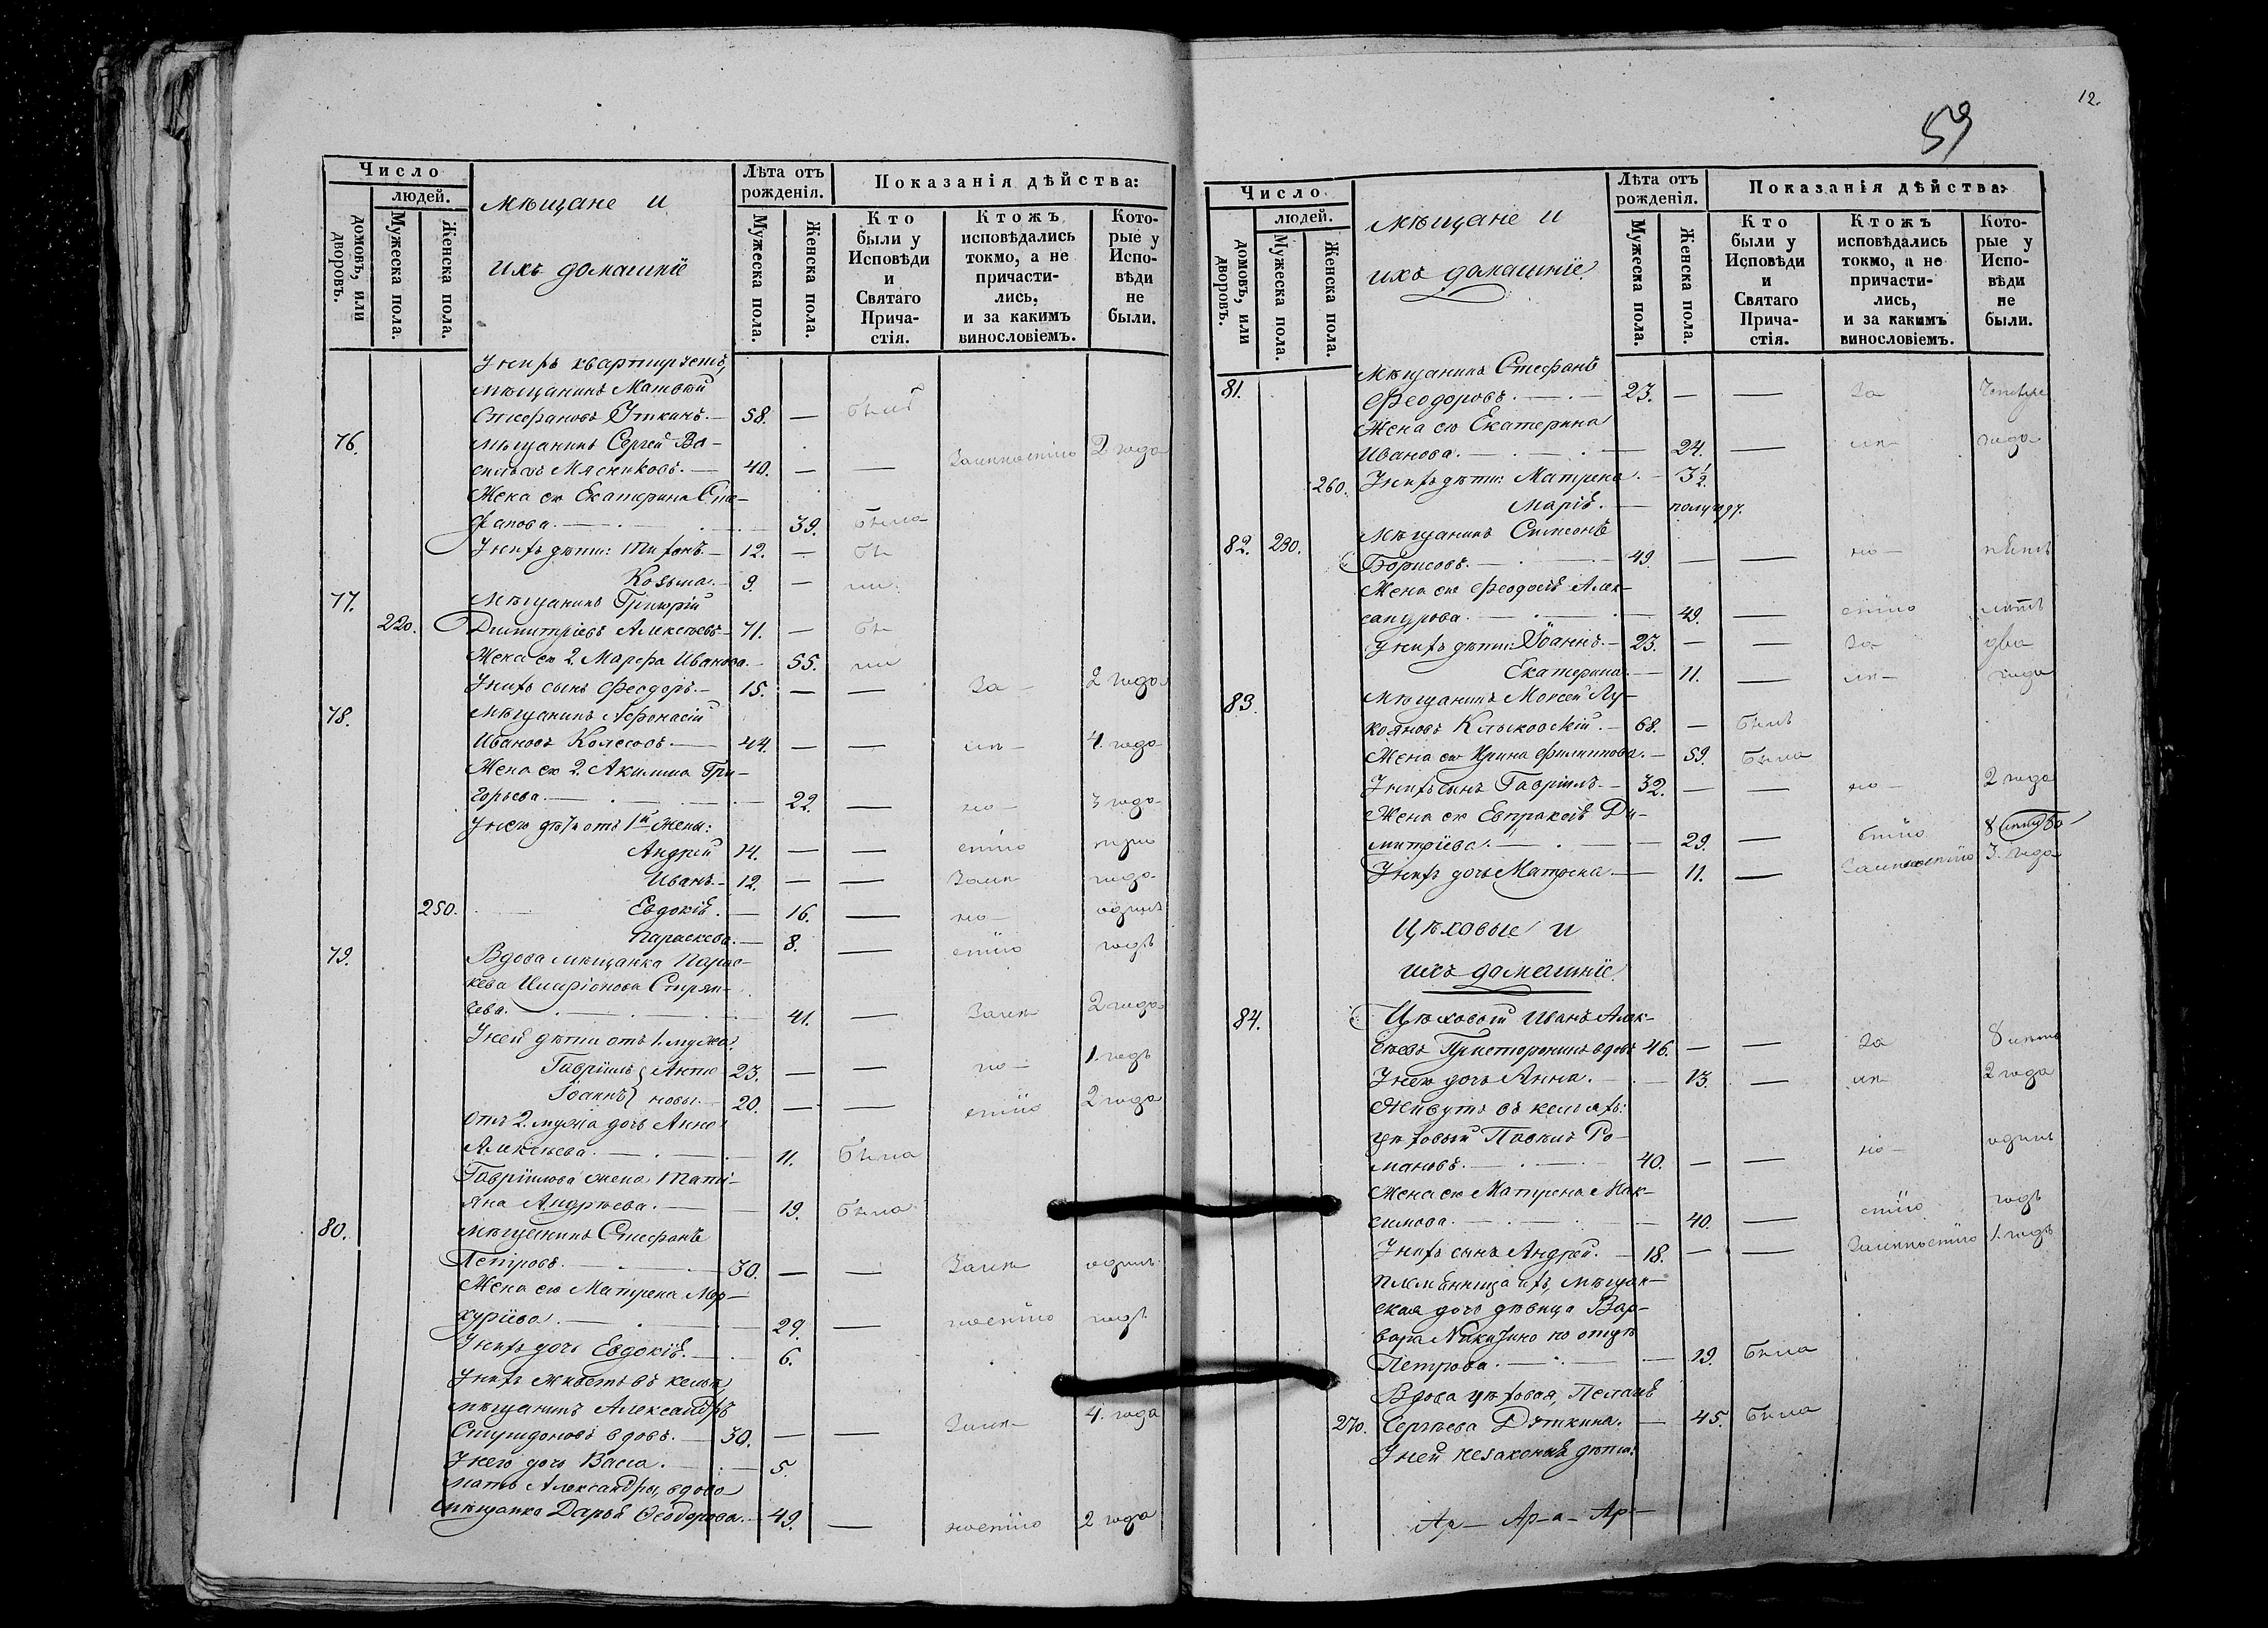 Число
людей.
домовъ, или дворовъ.
Мужеска пола.
Женска пола.
Мѣщане и
ихъ домашніе
Лѣта отъ рожденія.
Мужеска пола.
Женска пола.
Показанія дѣйства:
Кто были у Исповѣди и Святаго Прича-стія.
Ктожъ исповѣдались токмо, а не причасти-лись, и за какимъ винословіемъ.
Кото-рые у Испо-вѣди не были.
У нихъ квартируетъ,
мѣщанинъ Матвѣй
Стефановъ Уткинъ. 58. — былъ
76. Мѣщанинъ Сергей Ва-
сильевъ Мясниковъ. 40. — — Залѣностію 2 года
Жена его Екатерина Сте-
фанова. 39. была
У нихъ дѣти: Тихонъ. 12. — бы
Козьма. 9. — ли
77. Мѣщанинъ Григорій
220. Димитріевъ Алексѣевъ 71. — бы
Жена его 2. Марфа Иванова. 55. ли
У нихъ сынъ Феодоръ. 15. — — За 2 года
78. Мѣщанинъ Афонасій
Ивановъ Колесовъ. 44. — — лѣ 4. года
Жена его 2. Акилина Гри-
горьева. 22. — но 3 года
У него дѣти отъ 1й жены:
Андрей 14. — — стію три
Иванъ. 12. — — Залѣ года
250. Евдокія. 16. — но одинъ
Параскева. 8. — стію годъ
79. Вдова мѣщанка Парас-
кева Иларіонова Стряп-
чева. 41. — Залѣ 2 года
У ней дѣти отъ 1. мужа:
Гавріилъ } Анто 23. — — но 1. годъ
Іоаннъ } новы. 20. — — стію 2 года
Отъ 2. мужа дочь Анна
Алексѣева. 11. была
Гавріилова жена Тати-
яна Андрѣева. 19. была
80. Мѣщанинъ Стефанъ
Петровъ. 30. — — Залѣ одинъ
Жена его Матрена Мер-
куріева. 29. — ностію годъ
У нихъ дочь Евдокія. 6.
У нихъ живетъ въ кельѣ,
мѣщанинъ Александръ
Спиридоновъ вдовъ. 30. — — Залѣ 4. года
У него дочь Васса. 5.
Мать Александры, вдова
мѣщанка Дарья Феодорова. 49. — ностію 2 года
59
12.
Число
людей.
домовъ, или дворовъ.
Мужеска пола.
Женска пола.
Мѣщане и
ихъ домашніе
Лѣта отъ рожденія.
Мужеска пола.
Женска пола.
Показанія дѣйства:
Кто были у Исповѣди и Святаго Прича-стія.
Ктожъ исповѣдались токмо, а не причасти-лись, и за какимъ винословіемъ.
Кото-рые у Испо-вѣди не были.
81. Мѣщанинъ Стефанъ
Феодоровъ. 23. — — За четыре
Жена его Екатерина
Иванова. 24. — лѣ года
260. У нихъ дѣти: Матрена. 3½.
Марія. полугоду.
82. 230. Мѣщанинъ Симеонъ
Борисовъ. 49. — — но пять
Жена его Феодосія Алек-
сандрова. 49. — стію лѣтъ
У нихъ дѣти: Іоаннъ. 23. — — За два
Екатерина. 11. — лѣ года
83. Мѣщанинъ Моисей Лу-
кояновъ Клыковскій. 68. — былъ
Жена его Ирина Филиппова. 59. была
У нихъ сынъ Гавріилъ. 32. — — но 2 года
Жена его Евпраксія Ди-
митріева. 29. — стію 8
У нихъ дочь Матрена. 11. — Залѣностію 3. года
Цѣховые и
ихъ домашніе
84. Цѣховый Иванъ Алек-
сѣевъ вдовъ 46. — — За 8 лѣтъ
У него дочь Анна. 13. — лѣ 2 года
Живутъ въ кельяхъ:
цѣховый Павелъ Ро-
мановъ. 40. — — но одинъ
Жена его Матрена Мак-
симова. 40. — стію годъ
У нихъ сынъ Андрей. 18. — — Залѣностію 1. годъ
Племянница ихъ, мѣщан-
ская дочь дѣвица Вар-
вара по отцѣ
Петрова. 19. была
Вдова цѣховая, Пелагія
270. Сергѣева Дяткина. 45. была
У ней незаконныя дѣти: